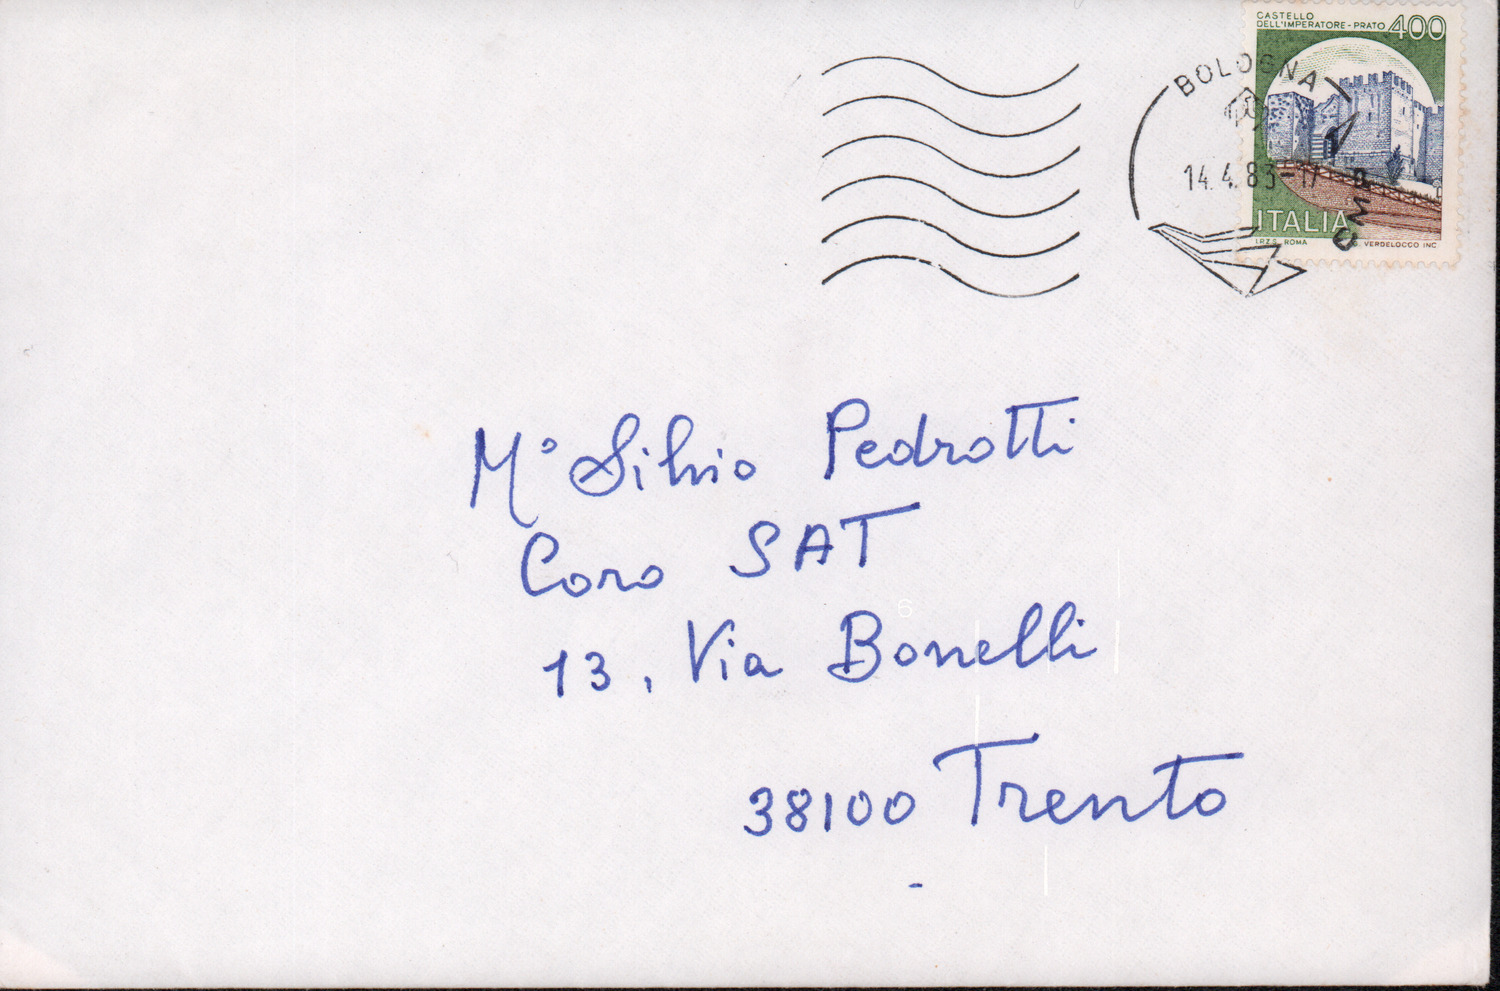 CASTELLO
DELL'IMPERATORE - PRATO 400
BOLOGNA
14.4.83-17
CMP
ITALIA
I.P.Z.S. ROMA VERDELOCCO INC.
M° Silvio Pedrotti
Coro SAT
13, Via Bonelli
38100 Trento